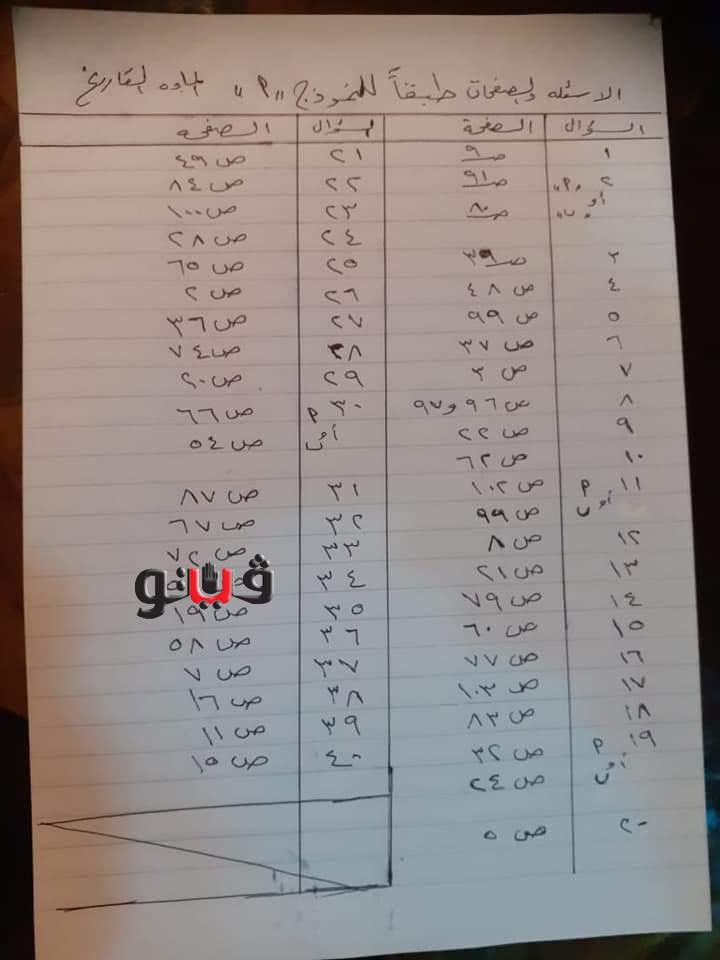 الاسئله والصفحات طبقاً للنموذج "أ" الماده التاريخ
السؤال الصفحة السؤال الصفحه
١ ص ٩ ٢١ ص ٤٩
٢ "أ" ص ٩١ ٢٢ ص ٨٤
أو "ب" ص ٨٠ ٢٣ ص ١٠٠
٢٤ ص ٢٨
٣ ص ٣٩ ٢٥ ص ٦٥
٤ ص ٤٨ ٢٦ ص ٢
٥ ص ٩٩ ٢٧ ص ٣٦
٦ ص ٣٧ ٢٨ ص ٧٤
٧ ص ٣ ٢٩ ص ٢٠
٨ ص ٩٦ و ٩٧ ٣٠ أ ص ٦٦
٩ ص ٢٢ أو ب ص ٥٤
١٠ ص ٦٢
١١ أ ص ١٠٢ ٣١ ص ٨٧
أو ب ص ٩٩ ٣٢ ص ٦٧
١٢ ص ٨ ٣٣ ص
١٣ ص ٢١ ٣٤
ڤيتو
١٤ ص ٧٩ ٣٥ ص ١٩
١٥ ص ٦٠ ٣٦ ص ٥٨
١٦ ص ٧٧ ٣٧ ص ٧
١٧ ص ١٠٣ ٣٨ ص ١٦
١٨ ص ٨٣ ٣٩ ص ١١
١٩ أ ص ٣٢ ٤٠ ص ١٥
أو ب ص ٢٤
٢٠ ص ٥